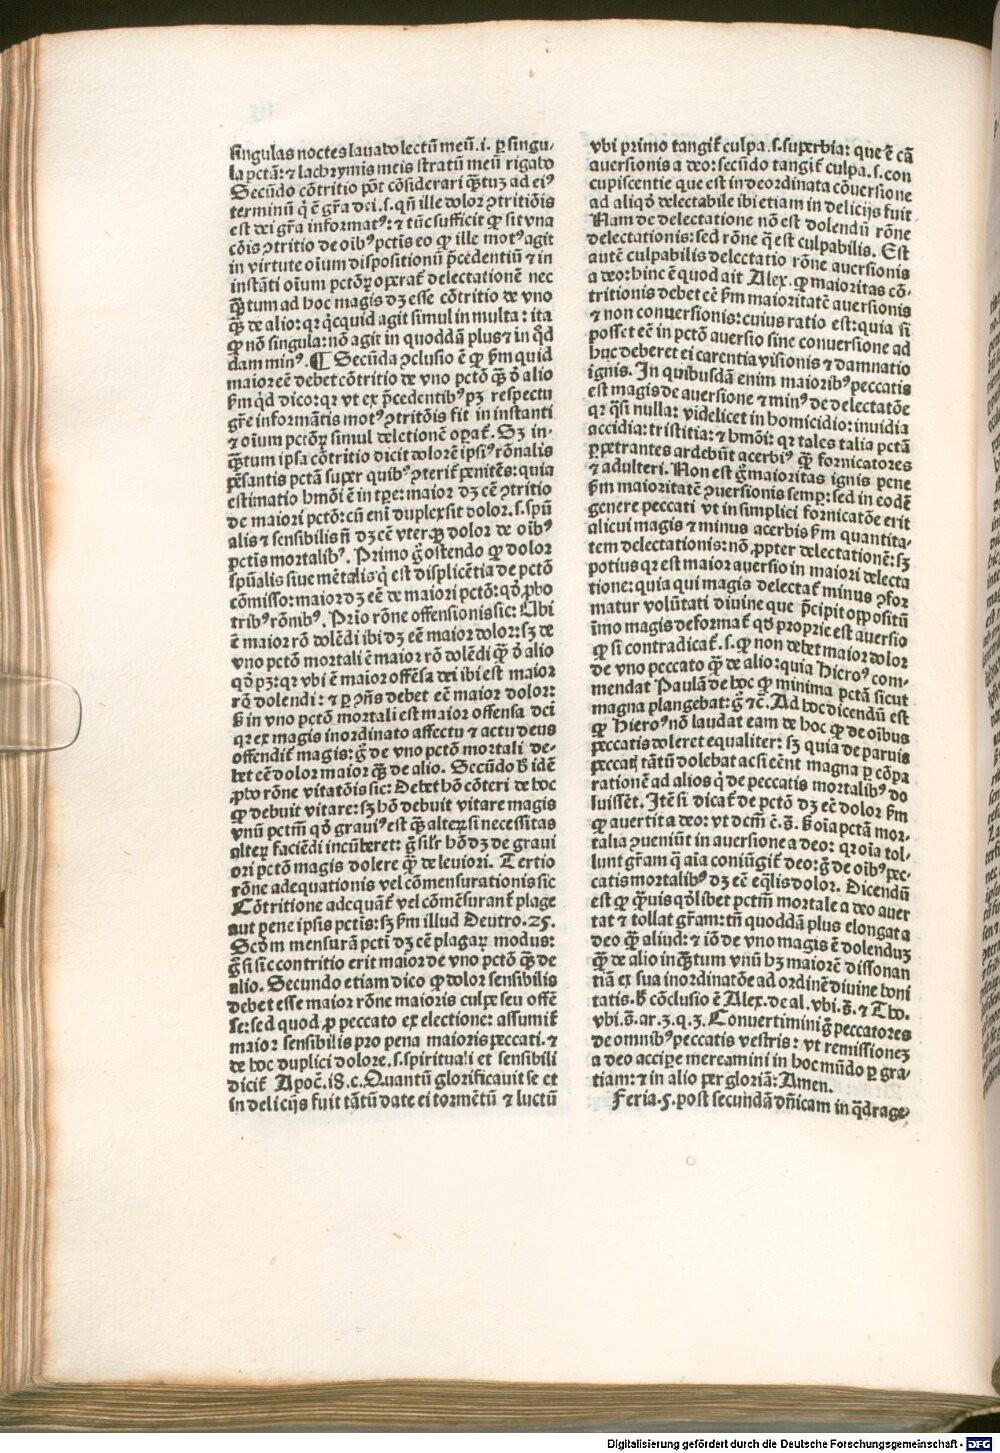 singulas noctes lavabo lectū meū.i. ꝑ singu-
la pctā: ⁊ lachrymis meis stratū meū rigabo
Secūdo cōtritio pōt cōsiderari q̄ꝫtuꝫ ad eiꝰ
terminū q̇ ē gr̄a dei.s. qn̄ ille dolor ꝯtritiōis
est dei gr̄a informatꝰ: ⁊ tūc sufficit ꝙ sit vna
cōis ꝯtritio de oibꝰ pctis eo ꝙ ille motꝰ agit
in virtute oium dispositionū p̄cedentiū ⁊ in
instāti oium pctōꝝ operat̄ delectationē nec
q̄ꝫtum ad hoc magis dꝫ esse cōtritio de vno
q̄ꝫ de alio: qꝛ qͥcquid agit simul in multa: ita
ꝙ nō singula: nō agit in quoddā plus ⁊ in qͦd
dam minꝰ. ¶ Secūda ꝯclusio ē ꝙ ẜm quid
maior eē debet cōtritio de vno pctō q̄ꝫ ď alio
ẜm qͦd dico: qꝛ vt ex p̄cedentibꝰ pꝫ respectu
gr̄e informātis motꝰ ꝯtritōis fit in instanti
⁊ oium pctōꝝ simul deletionē oꝑat̄. Sꝫ in-
q̄ꝫtum ipsa cōtritio dicit dolorē ipsiꝰ rōnalis
pēsantis pctā super quibꝰ ꝯterit̄ penitēs: quia
estimatio hmōi ē in tꝑe: maior dꝫ eē ꝯtritio
de maiori pctō: cū enī duplex sit dolor.s. spū
alis ⁊ sensibilis ñ dꝫ eē vterqꝫ dolor de oibꝰ
pctis mortalibꝰ. Primo ḡ ostendo ꝙ dolor
spūalis siue mētalis q̇ est displicētia de pctō
cōmisso: maior dꝫ eē de maiori pctō: qď ꝓbo
tribꝰ rōnibꝰ. Prio rōne offensionis sic: Ubi
ē maior rō dolēdi ibi dꝫ eē maior dolor: sꝫ de
vno pctō mortali ē maior rō dolēdi q̄ꝫ ď alio
qď pꝫ: qꝛ vbi ē maior offēsa dei ibi est maior
rō dolendi: ⁊ ꝑ ꝯñs debet eē maior dolor:
ꝟ in vno pctō mortali est maior offensa dei
qꝛ ex magis inordinato affectu ⁊ actu deus
offendit̄ magis: ḡ de vno pctō mortali de-
bet eē dolor maior q̄ꝫ de alio. Secūdo ħ idē
ꝓbo rōne vitatōis sic: Debet hō cōteri de hoc
ꝙ debuit vitare: sꝫ hō debuit vitare magis
vnū pctm̄ qď grauiꝰ est q̄ꝫ alteꝝ si necessitas
alteꝝ faciēdi incūberet: ḡ silr̄ hō dꝫ de graui
ori pctō magis dolere q̄ꝫ de leuiori. Tertio
rōne adequationis vel cōmensurationis sic
Cōtritione adequāt̄ vel cōmēsurant̄ plage
aut pene ipsis pctis: sꝫ ẜm illud Deutro.25.
Scdm mensurā pcti dꝫ eē plagaꝝ modus:
ḡ si sic contritio erit maior de vno pctō q̄ꝫ de
alio. Secundo etiam dico ꝙ dolor sensibilis
debet esse maior rōne maioris culpe seu offē
se: sed quod ꝓ peccato ex electione: assumit̄
maior sensibilis pro pena maioris peccati. ⁊
de hoc duplici dolore.s.spirituali et sensibili
dicit̄ Apoc̄.i8.c. Quantū glorificauit se et
in delicijs fuit tātū date ei tormētū ⁊ luctū
vbi primo tangit̄ culpa.s.superbia: que ē cā
auersionis a deo: secūdo tangit̄ culpa.s.con
cupiscentie que est in deordinata cōuersione
ad aliqď delectabile ibi etiam in delicijs fuit
Nam de delectatione nō est dolendū rōne
delectationis: sed rōne q̄ est culpabilis. Est
autē culpabilis delectatio rōne auersionis
a deo: hinc ē quod ait Alex. ꝙ maioritas cō-
tritionis debet eē ẜm maioritatē auersionis
⁊ non conuersionis: cuius ratio est: quia si
posset eē in pctō auersio sine conuersione ad
huc deberet ei carentia visionis ⁊ damnatio
ignis. In quibusdā enim maioribꝰ peccatis
est magis de auersione ⁊ minꝰ de delectatōe
qꝛ q̄si nulla: videlicet in homicidio: inuidia
accidia: tristitia: ⁊ hmōi: qꝛ tales talia pctā
ꝑpetrantes ardebūt acerbiꝰ q̄ꝫ fornicatores
⁊ adulteri. Non est ḡ maioritas ignis pene
ẜm maioritatē ꝯuersionis semꝑ: sed in eodē
genere peccati vt in simplici fornicatōe erit
alicui magis ⁊ minus acerbis ẜm quantita-
tem delectationis: nō ꝓpter delectationē: sꝫ
potius qꝛ est maior auersio in maiori delecta
tione: quia qui magis delectat̄ minus ꝯfor
matur volūtati diuine que p̄cipit oppositū
īmo magis deformat̄ qď proprie est auersio
ꝙ si contradicat̄.s. ꝙ non debet maior dolor
de vno peccato q̄ꝫ de alio: quia Hieroꝰ com-
mendat Paulā de hoc ꝙ minima pctā sicut
magna plangebat: ḡ ⁊c̄. Ad hoc dicendū est
ꝙ Hieroꝰ nō laudat eam de hoc ꝙ de oibus
peccatis doleret equaliter: sꝫ quia de paruis
peccatꝭ tātū dolebat ac si eēnt magna ꝑ cōpa
rationē ad alios q̇ de peccatis mortalibꝰ do
luissēt. Itē si dicat̄ de pctō dꝫ eē dolor ẜm
ꝙ auertit a deo: vt dcm̄ ē.s̄. ꝟ oia pctā mor-
talia ꝯueniūt in auersione a deo: qꝛ oia tol-
lunt gr̄am q̄ aia coniūgit̄ deo: ḡ de oibꝰ pec-
catis mortalibꝰ dꝫ eē eq̄lis dolor. Dicendū
est ꝙ q̄ꝫuis qōlibet pctm̄ mortale a deo auer
tat ⁊ tollat gr̄am: tñ quoddā plus elongat a
deo q̄ꝫ aliud: ⁊ iō de vno magis ē dolenduꝫ
q̄ꝫ de alio in q̄ꝫtum vnū hꝫ maiorē dissonan
tiā ex sua inordinatōe ad ordinē diuine boni
tatis. ħ cōclusio ē Alex. de al. vbi.s̄. ⁊ Tho.
vbi.s̄.ar.3.q.3. Conuertimini ḡ peccatores
de omnibꝰ peccatis vestris: vt remissioneꝫ
a deo accipe mereamini in hoc mūdo ꝑ gra-
tiam: ⁊ in alio per gloriā: Amen.
Feria.5.post secundā dñicam in q̄drage-
Digitalisierung gefördert durch die Deutsche Forschungsgemeinschaft - DFG